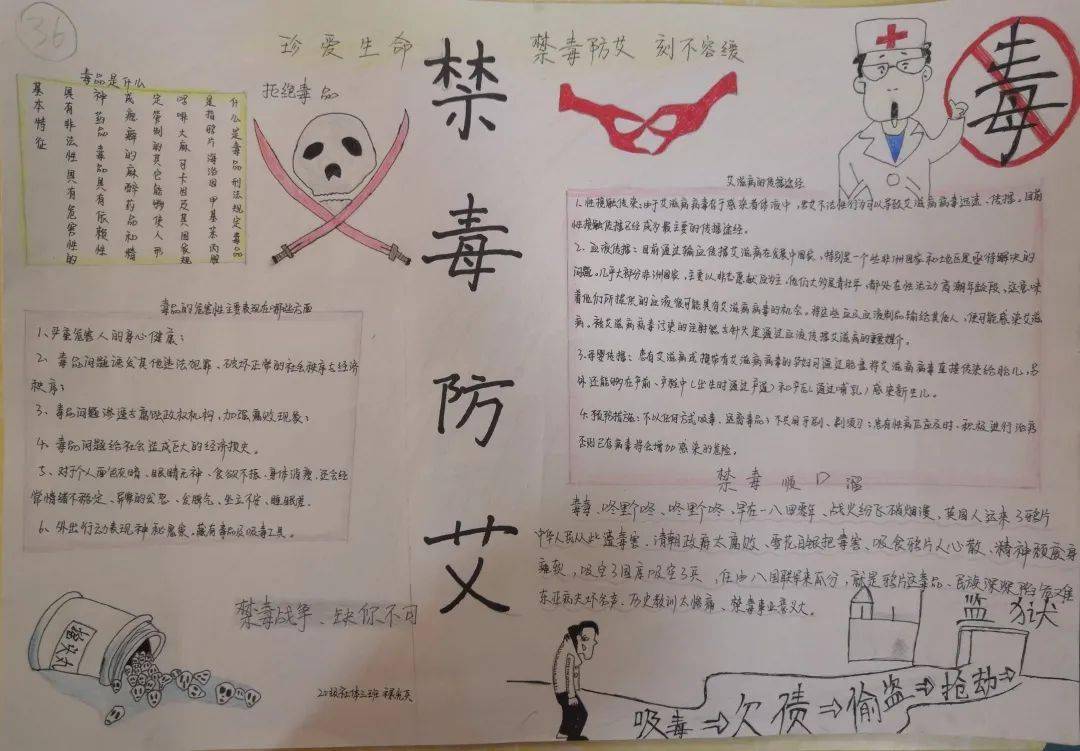 36
珍爱生命
禁毒防艾 刻不容缓
禁毒防艾
毒品是什么
什么是毒品刑法规定毒品
是指鸦片海洛因甲基苯丙胺
吗啡大麻可卡因及其国家规
定管制的其它能够使人形
成瘾癖的麻醉药品和精
神药品毒品具有依赖性
具有非法性具有危害性的
基本特征
拒绝毒品
毒
毒品的危害性主要表现在哪些方面
1、严重危害人的身心健康;
2、毒品问题诱发其他违法犯罪,破坏正常的社会秩序与经济
秩序;
3、毒品问题渗透与腐蚀政权机构,加强腐败现象;
4、毒品问题给社会造成巨大的经济损失。
5、对于个人面色灰暗、眼睛无神、食欲不振、身体消瘦,还会经
常情绪不稳定、异常的发怒、发脾气、坐立不安、睡眠差.
6、外出行动表现神秘鬼祟,藏有毒品及吸毒工具。
艾滋病的传播途经
1.性接触传染:由于艾滋病病毒存于感染者体液中
性接触传播已经成为最主要的传播途经。
2、血液传播:目前通过输血传播艾滋病在发展中国家,特别是一个些非洲国家和地区是亟待解决的
问题。几乎大部分非洲国家,主要以非志愿献血为主。他们大多是青壮年,都处在性活动高潮年龄段,这意味
着他们所提供的血液很可能具有艾滋病病毒的机会。将这些血及血液制品输给其他人,便可能感染艾滋
病。被艾滋病病毒污染的注射器与针头是通过血液传播艾滋病的重要媒介。
3.母婴传播:患有艾滋病或携带有艾滋病病毒的孕妇可通过胎盘将艾滋病病毒直接传染给胎儿,另
外还能够在产前、产程中(出生时通过产道)和产后(通过哺乳)感染新生儿。
4.预防措施:不以任何方式吸毒、远离毒品;不共用牙刷、剃须刀;患有性病应及时、积极进行治疗
否则已存病毒将会增加感染的危险。
禁毒顺口溜
毒毒,咚里个咚、咚里个咚、早在一八四零年,战火纷飞硝烟漫,英国人运来了鸦片
中华人民从此遭毒害.清朝政府太腐败、雪花白银把毒害、吸食鸦片人心散、精神颓废身
躯软,吸空了国库吸空了兵,任由八国联军来瓜分,就是鸦片这毒品、民族深深陷危难
东亚病夫坏名声、历史教训太惨痛、禁毒事业意义大。
摇头丸
禁毒战争、缺你不可
监狱
吸毒⇒欠债⇒偷盗⇒抢劫⇒